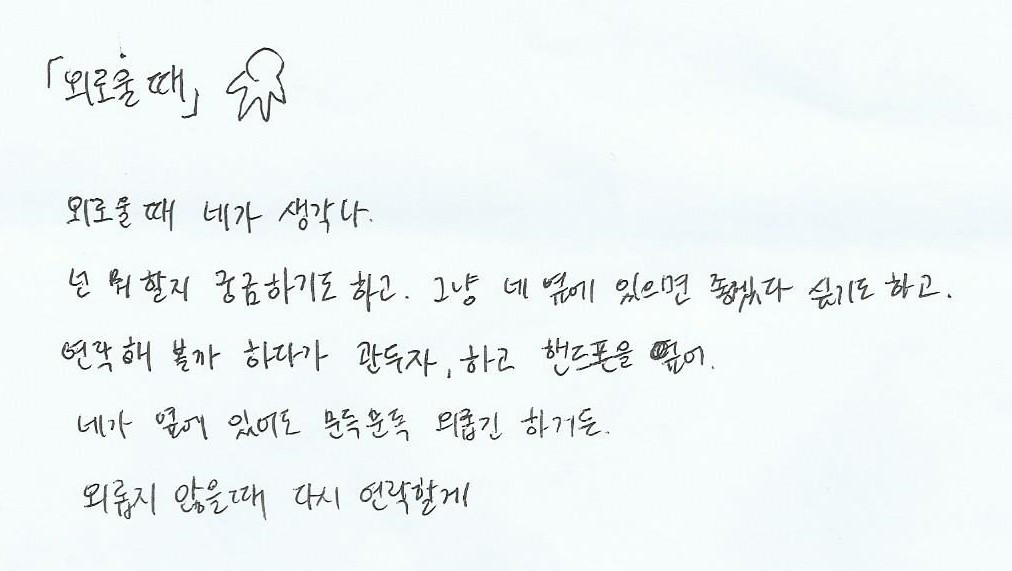 「외로울 때」
외로울 때 네가 생각나.
넌 뭐할지 궁금하기도 하고. 그냥 네 옆에 있으면 좋겠다 싶기도 하고.
연락해 볼까 하다가 관두자, 하고 핸드폰을 덮어.
네가 옆에 있어도 문득문득 외롭긴 하거든.
외롭지 않을때 다시 연락할게